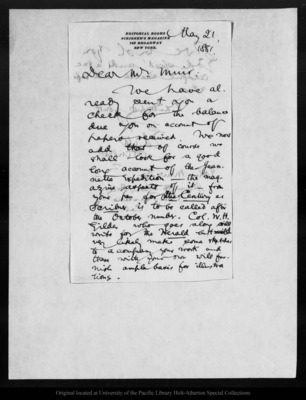 EDITORIAL ROOMS
SCRIBNER'S MAGAZINE
743 BROADWAY
NEW YORK.
May 21,
1881.
Dear Mr. Muir:
We have al-
ready sent you a
check for the balance
due you on account of
papers received. We now
add that of course we
shall look for a good
long account of the Jean-
nette Expedition — the mag-
azine aspects of it — from
your pen for The Century as
Scribner is to be called after
the October number. Col. W. H.
Gilder who goes along
writes for the Herald &
very likely makes some sketches
to accompany your work and
these with your own will fur-
nish ample basis for illustra-
tions.
Original located at University of the Pacific Library Holt-Atherton Special Collections